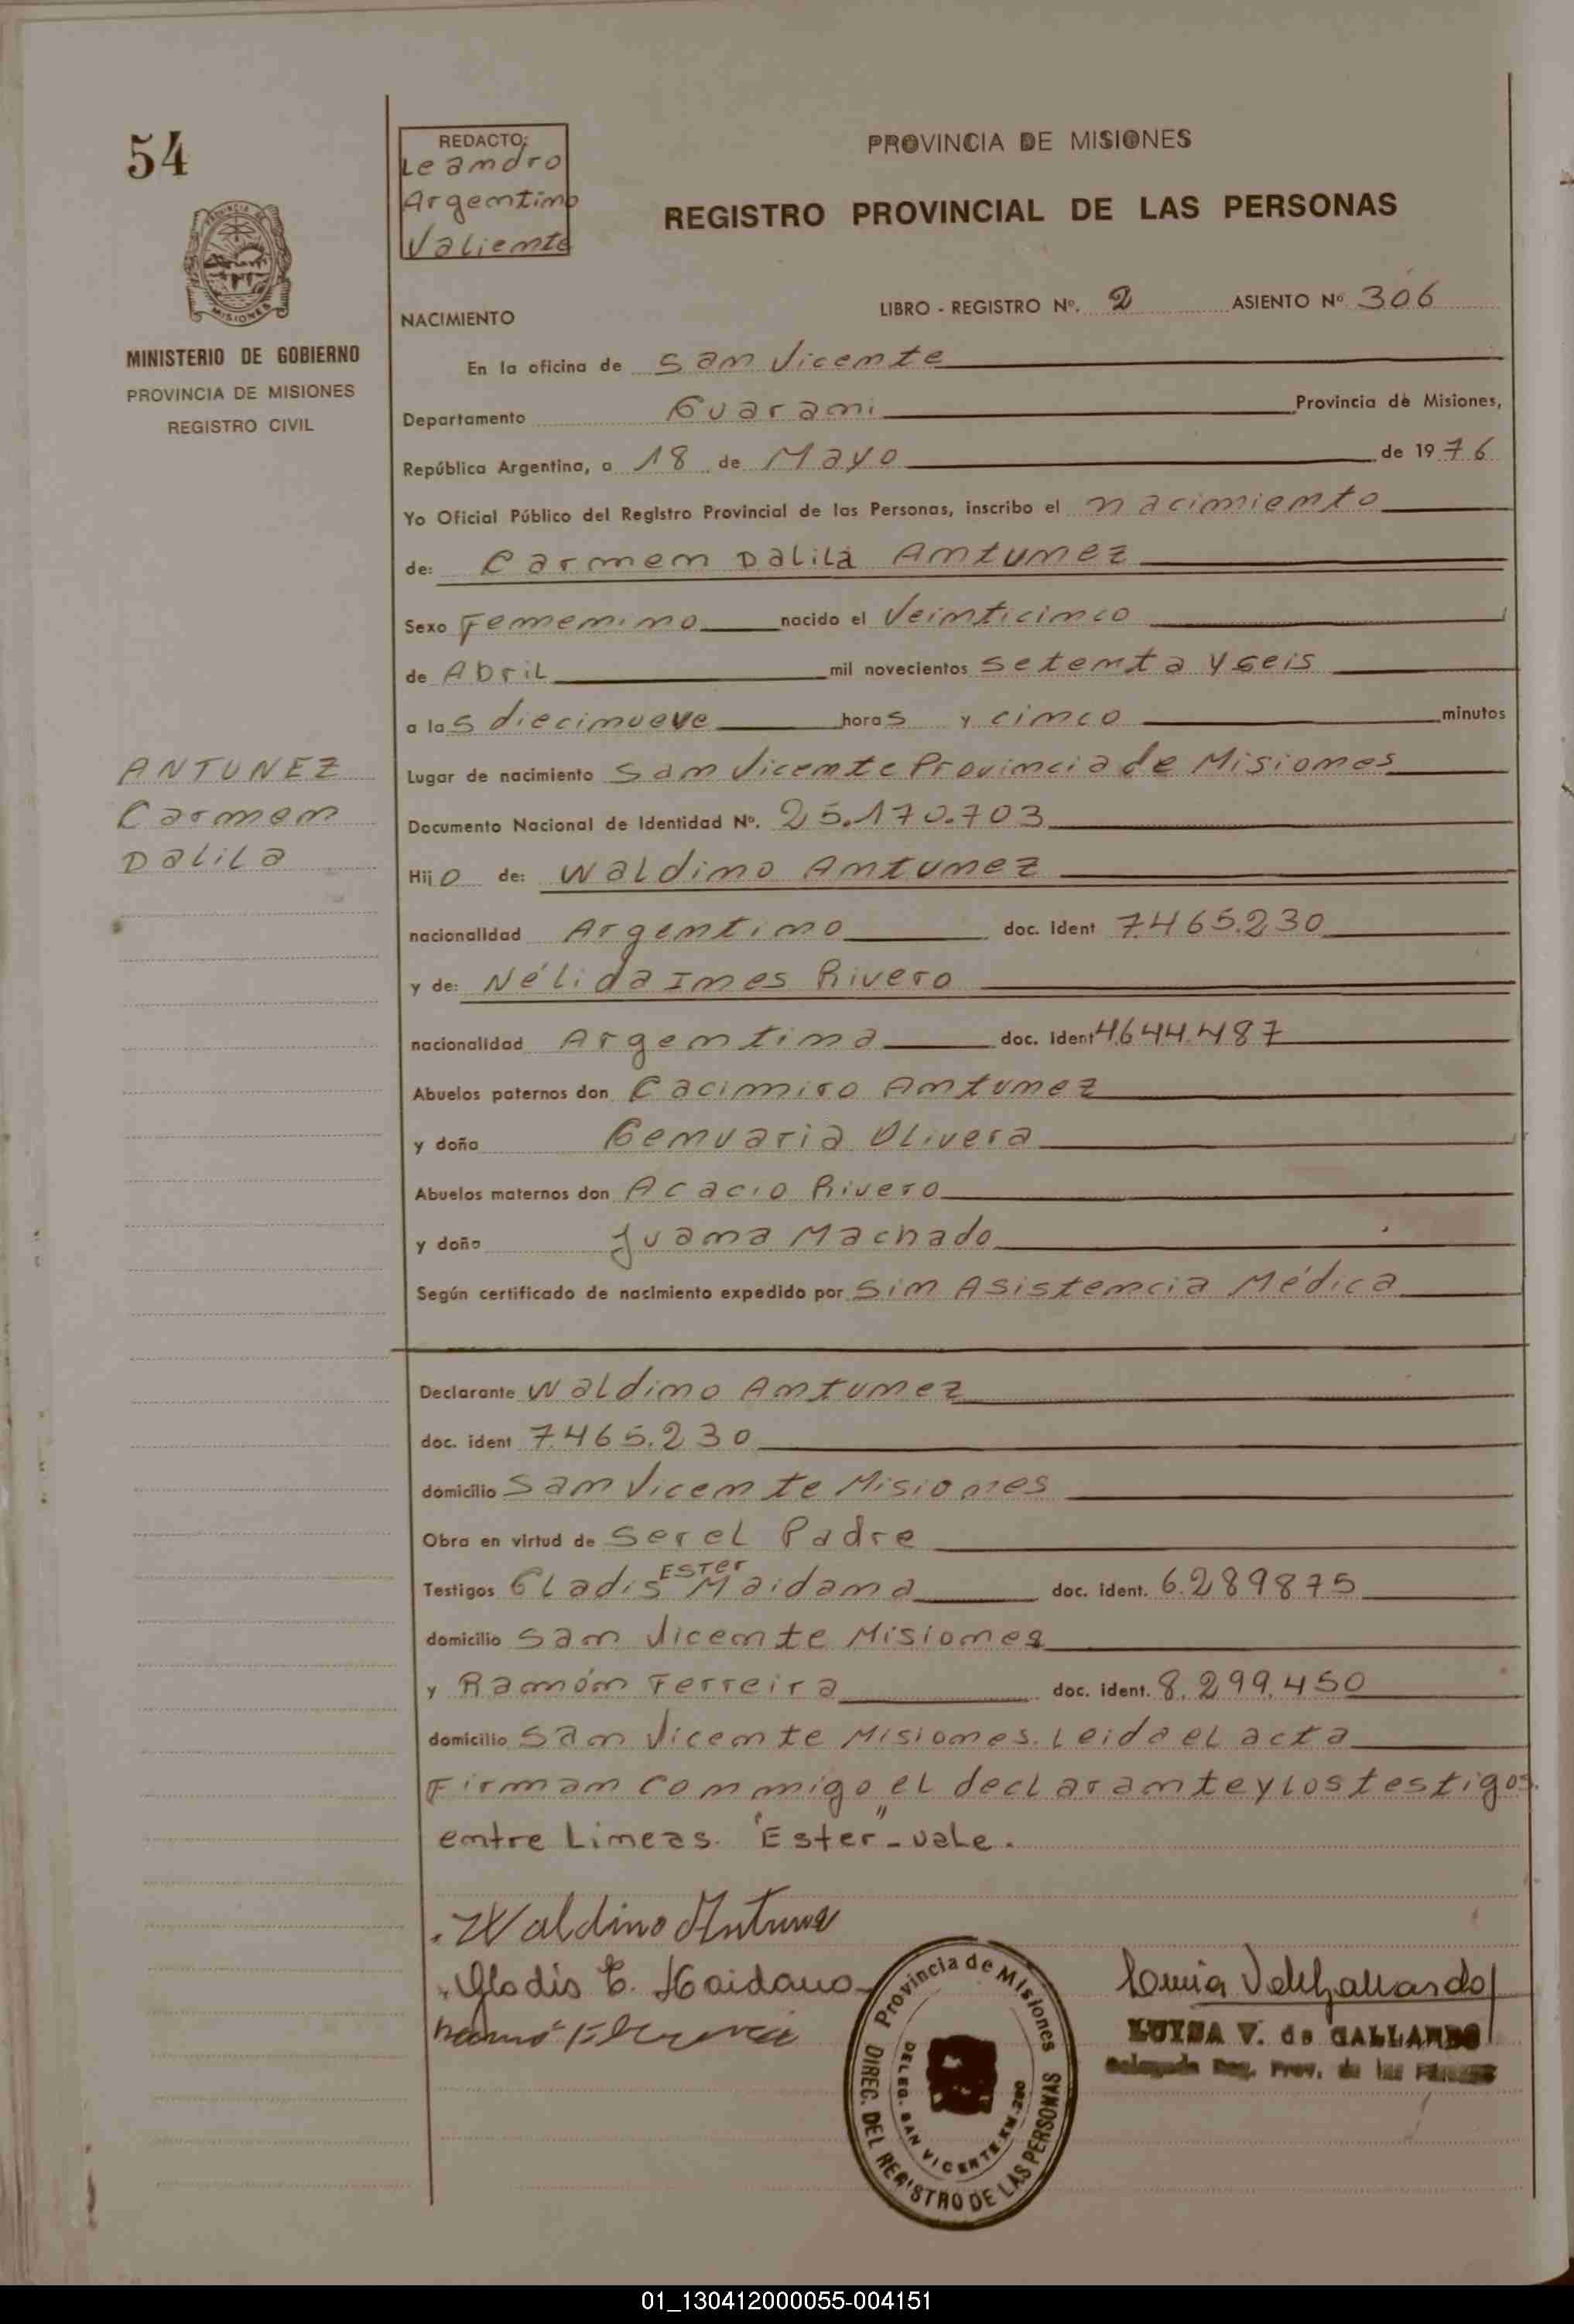 54
REDACTO:
Leandro
Argentino
Valiente
PROVINCIA DE MISIONES
REGISTRO PROVINCIAL DE LAS PERSONAS
PROVINCIA DE
MISIONES
MINISTERIO DE GOBIERNO
PROVINCIA DE MISIONES
REGISTRO CIVIL
NACIMIENTO
LIBRO - REGISTRO Nº. 2 ASIENTO Nº 306
En la oficina de San Vicente
Departamento Guarani Provincia de Misiones,
República Argentina, a 18 de Mayo de 1976
Yo Oficial Público del Registro Provincial de las Personas, inscribo el nacimiento
de: Carmen Dalila Antunez
Sexo Femenino nacido el Veinticinco
de Abril mil novecientos setenta y seis
a las diecinueve horas y cinco minutos
Lugar de nacimiento San Vicente Provincia de Misiones
ANTUNEZ
Carmen
Dalila
Documento Nacional de Identidad Nº. 25.170.703
Hijo de: Waldino Antunez
nacionalidad Argentino doc. ident 7.465.230
y de: Nélida Ines Rivero
nacionalidad Argentina doc. ident 4.644.487
Abuelos paternos don Cacimiro Antunez
y doña Genuaria Olivera
Abuelos maternos don Acacio Rivero
y doña Juana Machado
Según certificado de nacimiento expedido por Sin Asistencia Médica
Declarante Waldino Antunez
doc. ident 7.465.230
domicilio San Vicente Misiones
Obra en virtud de Ser el Padre
Testigos Gladis Ester Maidana doc. ident. 6.289875
domicilio San Vicente Misiones
y Ramón Ferreira doc. ident. 8.299.450
domicilio San Vicente Misiones. Leida el acta
Firman conmigo el declarante y los testigos.
entre Lineas. "Ester" - vale.
Waldino Antunez
Gladis E. Maidana
LUISA V. de GALLARDO
Delegada Reg. Prov. de las Personas
Provincia de Misiones
DIREC. DEL REGISTRO DE LAS PERSONAS
DELEG. SAN VICENTE-KM.280
01_130412000055-004151